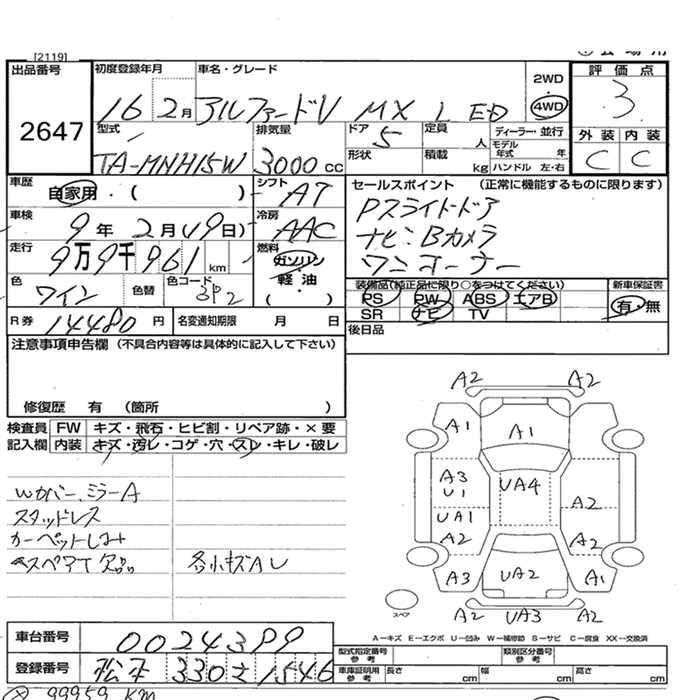 [2119]
出品番号
2647
初度登録年月
16 2月
車名・グレード
アルファードV MX L ED
2WD
4WD
評価点
3
外装 内装
C C
型式
TA-MNH15W
排気量
3000cc
ドア
5
形状
定員 人
積載 kg
ディーラー・並行
モデル年式 年
ハンドル 左・右
車歴
自家用・( )
シフト
AT
車検
9年2月(19日)
冷房
AAC
走行
9万9千961km
燃料
ガソリン
軽油
( )
色
ワイン
色替
色コード
3P2
R券
14480円
名変通知期限 月 日
セールスポイント (正常に機能するものに限ります)
Pスライドドア
ナビ:Bカメラ
ワンオーナー
装備品(純正品に限り○をつけてください)
PS PW ABS エアB
SR ナビ TV
新車保証書
有・無
後日品
注意事項申告欄 (不具合内容等は具体的に記入して下さい)
修復歴 有 (箇所 )
検査員記入欄
FW キズ・飛石・ヒビ割・リペア跡・×要
内装 キズ・汚レ・コゲ・穴・スレ・キレ・破レ
Wカバー、ミラーA
スタッドレス
カーペット
スペアT欠品
各小キズAU
A2 A2
A1 A1
A3
U1
UA4
UA1
A2
A2
A2
A3 UA2 A1
A2 UA3 A2
スペア
A—キズ E—エクボ U—凹み W—補修跡 S—サビ C—腐食 XX—交換済
車台番号
0024399
登録番号
松本 330 さ 1546
型式指定番号 参考
類別区分番号 参考
車庫証明用 参考
長さ cm 幅 cm 高さ cm
99959 KM